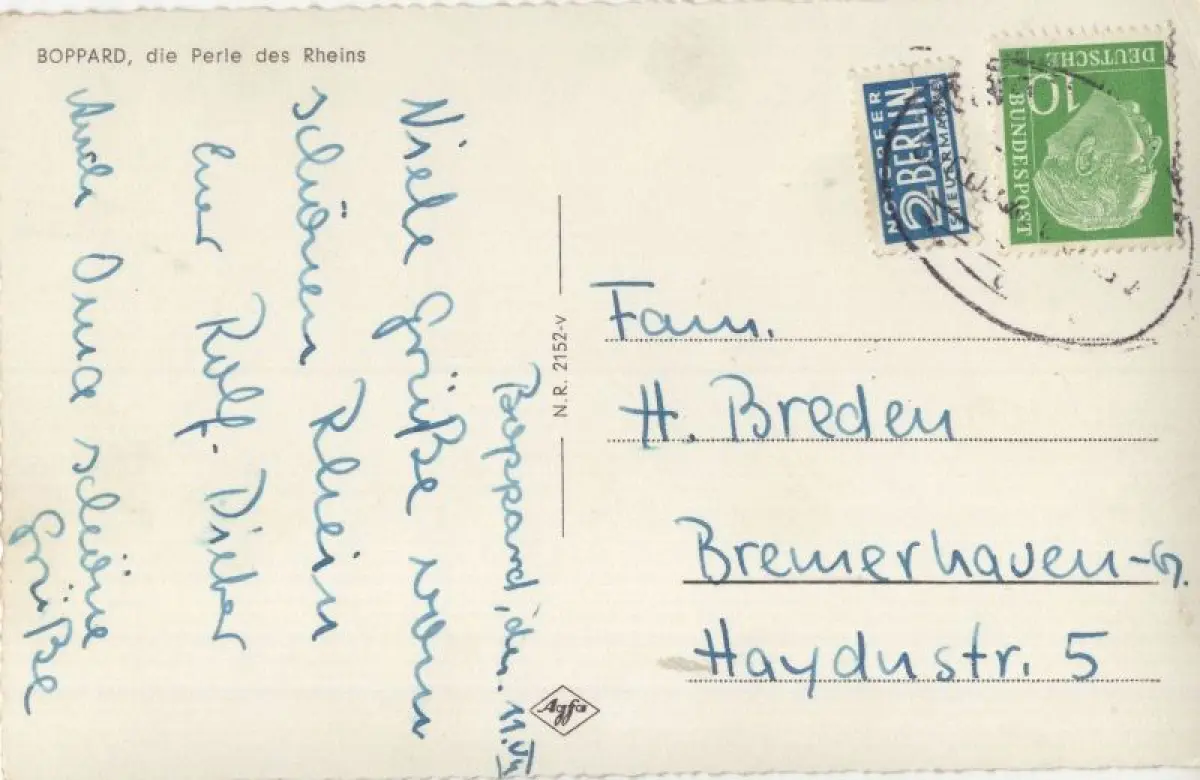 BOPPARD, die Perle des Rheins
Boppard, den. 11.VII
Viele Grüße vom
schönen Rhein
Euer Rolf-Dieter
Auch Oma schöne
Grüße
N.R. 2152-V
Agfa
NOTOPFER
2 BERLIN
STEUERMARKE
DEUTSCHE
10
BUNDESPOST
Fam.
H. Breden
Bremerhaven-G.
Haydnstr. 5